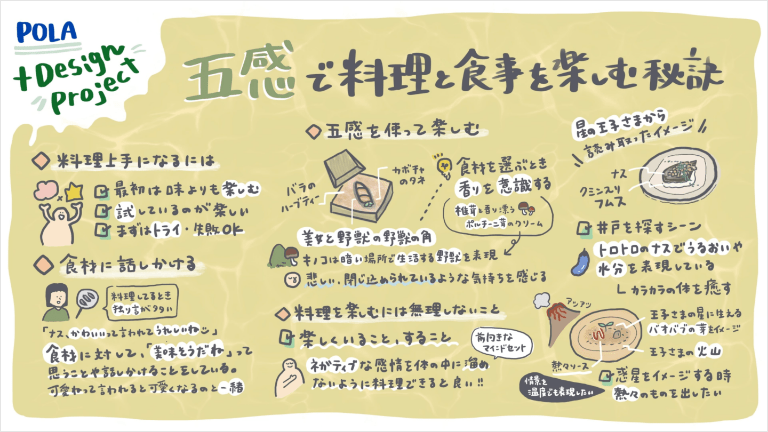 POLA
+Design
project
五感で料理と食事を楽しむ秘訣
料理上手になるには
最初は味よりも楽しむ
試しているのが楽しい
まずはトライ・失敗OK
食材に話しかける
料理してるとき
独り言が多い
「ナス、かわいいって言われてうれしいね」
食材に対して、「美味そうだね」って
思うことや話しかけることをしている。
可愛いねって言われると可愛くなるのと一緒
五感を使って楽しむ
バラの
ハーブティー
カボチャ
のタネ
食材を選ぶとき
香りを意識する
椎茸と香り漂う
ポルチーニ茸のクリーム
美女と野獣の野獣の角
キノコは暗い場所で生活する野獣を表現
悲しい、閉じ込められているような気持ちを感じる
料理を楽しむには無理しないこと
楽しくいること、すること
前向きな
マインドセット
ネガティブな感情を体の中に溜め
ないように料理できると良い!!
星の王子さまから
読み取ったイメージ
ナス
クミンスリ
フムス
井戸を探すシーン
トロトロのナスでうるおいや
水分を表現している
カラカラの体を癒す
アツアツ
王子さまの星に生える
バオバブの芽をイメージ
王子さまの火山
熱々ソース
惑星をイメージする時
熱々のものを出したい
情景を
温度でも表現したい